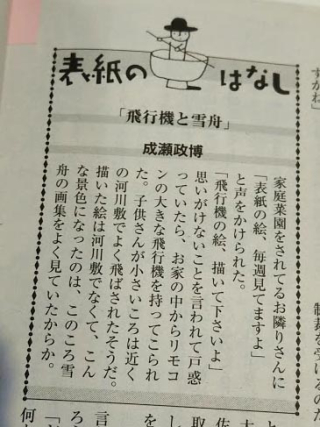 表紙の はなし
「飛行機と雪舟」
成瀬政博
家庭菜園をされてるお隣りさんに
「表紙の絵、毎週見てますよ」
と声をかけられた。
「飛行機の絵、描いて下さいよ」
思いがけないことを言われて戸惑
っていたら、お家の中からリモコ
ンの大きな飛行機を持ってこられ
た。子供さんが小さいころは近く
の河川敷でよく飛ばされたそうだ。
描いた絵は河川敷でなくて、こん
な景色になったのは、このころ雪
舟の画集をよく見ていたからか。